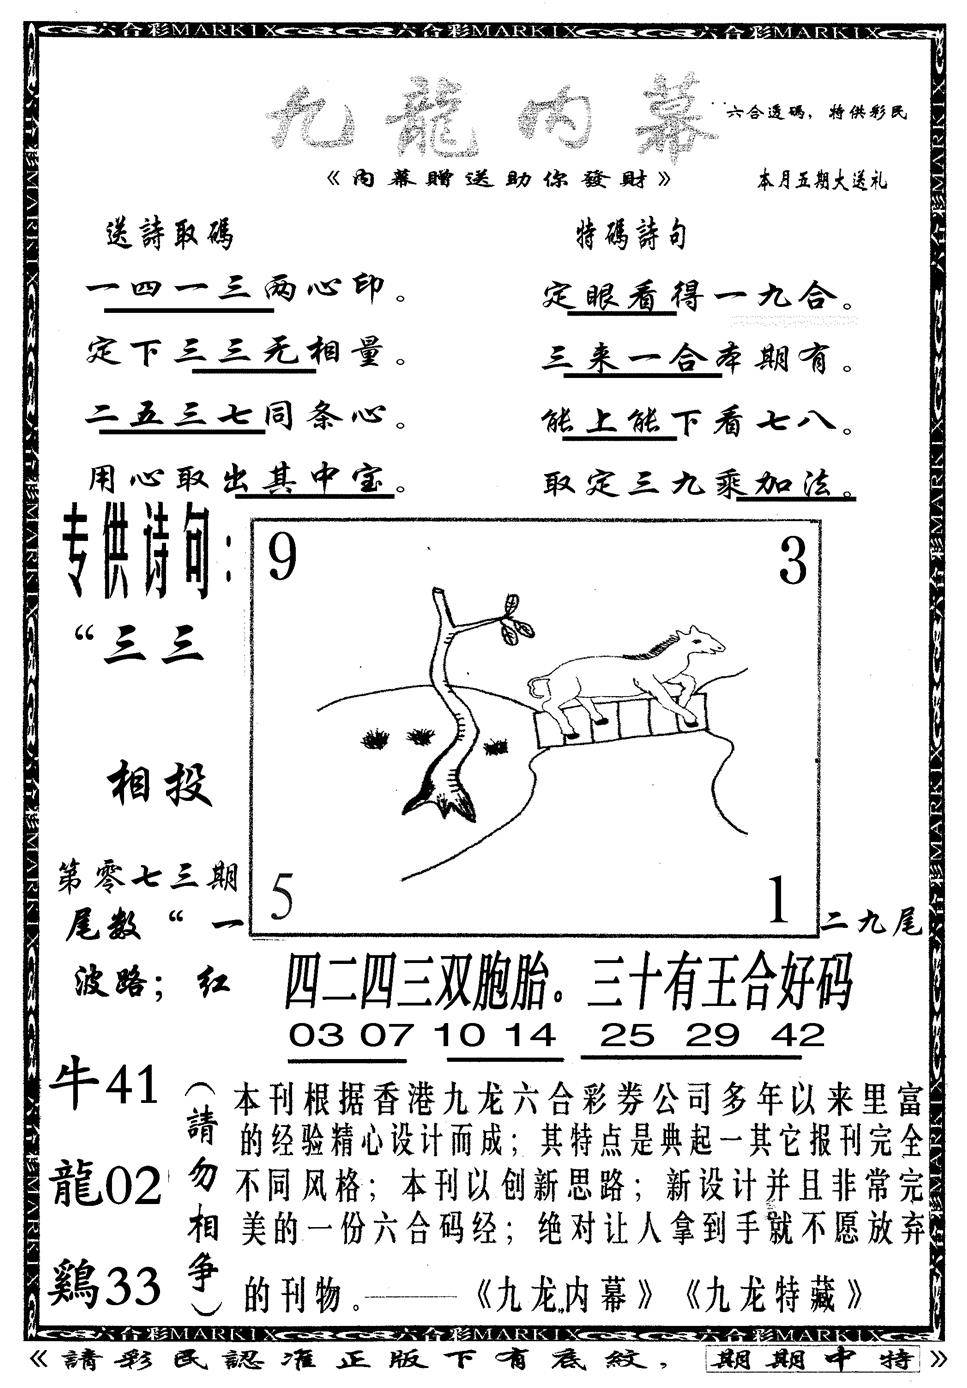 六合彩MARKIX 六合彩MARKIX 六合彩MARKIX
九龍内幕
六合透码，特供彩民
《内幕贈送助你發財》
本月五期大送礼
送詩取碼
一四一三两心印。
定下三三无相量。
二五三七同条心。
用心取出其中宝。
特碼詩句
定眼看得一九合。
三来一合本期有。
能上能下看七八。
取定三九乘加法。
专供诗句：
“三三
相投
第零七三期
尾数“一
二九尾
波路；红
9 3
5 1
四二四三双胞胎。三十有王合好码
03 07 10 14 25 29 42
牛41
龍02
鷄33
（請勿相争）
本刊根据香港九龙六合彩券公司多年以来里富
的经验精心设计而成；其特点是典起一其它报刊完全
不同风格；本刊以创新思路；新设计并且非常完
美的一份六合码经；绝对让人拿到手就不愿放弃
的刊物。———《九龙内幕》《九龙特藏》
六合彩MARKIX 六合彩MARKIX 六合彩MARKIX
《請彩民認准正版下有底紋，期期中特》